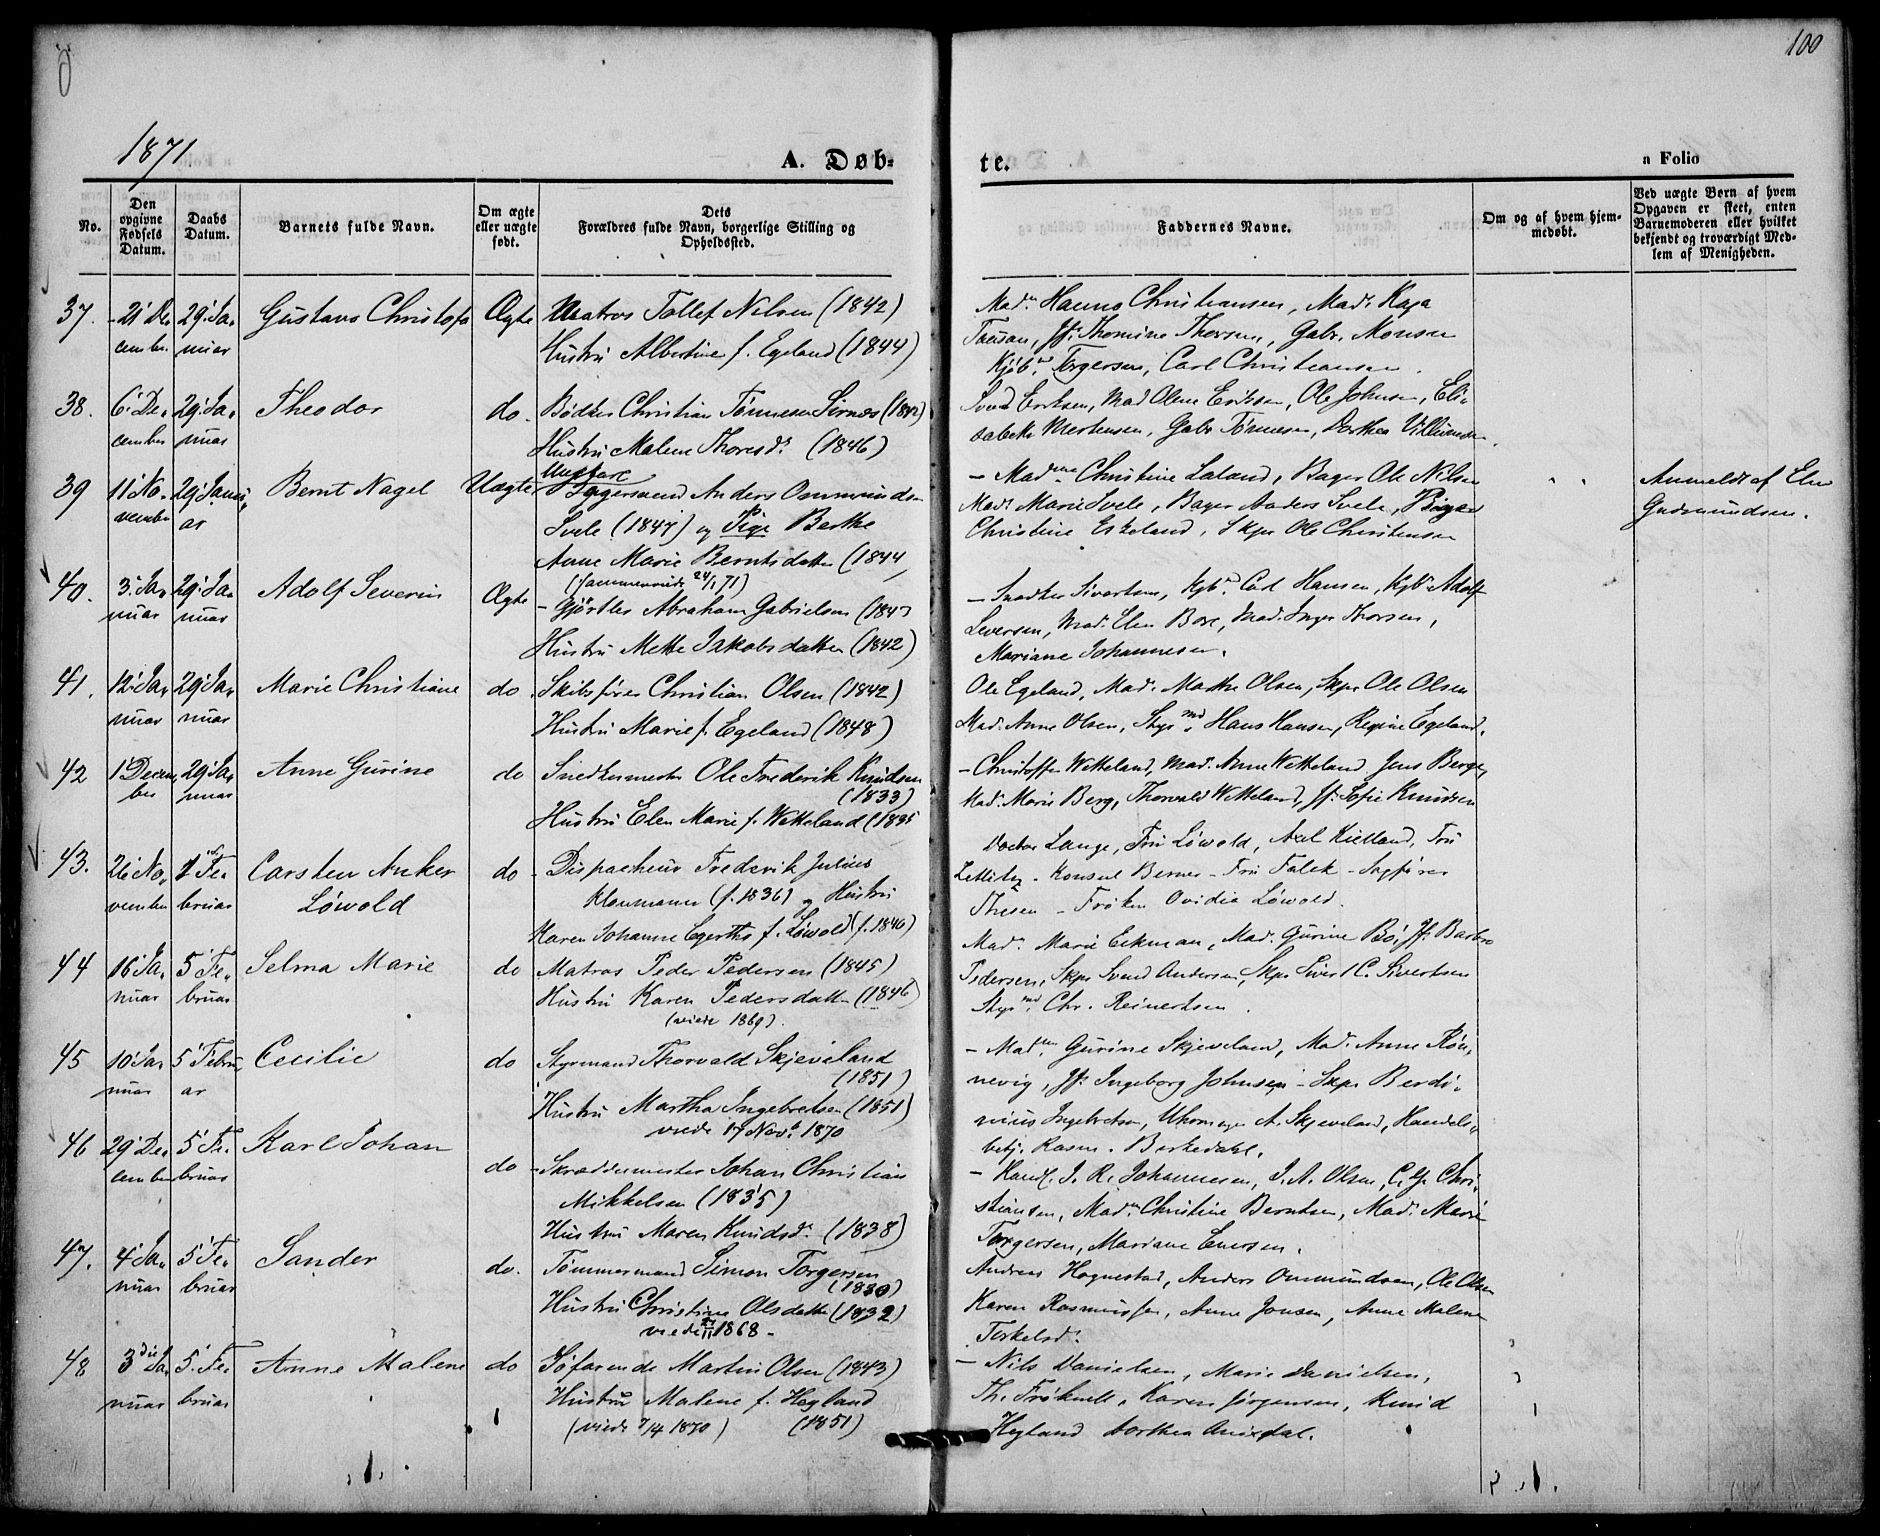 100
1871
A. Døb-
te.
n Folio
No.
Den opgivne Fødsels Datum.
Daabs Datum.
Barnets fulde Navn.
Om ægte eller uægte født.
Dets Forældres fulde Navn, borgerlige Stilling og Opholdssted.
Faddernes Navne.
Om og af hvem hjemmedøbt.
Ved uægte Børn af hvem Opgaven er skeet, enten Barnemoderen eller hvilket bekjendt og troværdigt Medlem af Menigheden.
37. 21 De- 29 Ja- Gustava Ægte Matros Tollef Nilsen (1842)
cember nuar Hustru Albertine f. Egeland (1844)
Mad. Hanna Christiansen, Mad. Kaja
Jf. Thomine Thorsen, Gabr. Monsen
Kjøb. Torgersen, Carl Christiansen.
38. 6 De- 29 Ja- Theodor do. Bødker Christian Tønnesen Sirnes (1842)
cember nuar Hustru Malene Thoresd. (1846)
Svend Eriksen, Mad Olene Eriksen, Ole Johnsen, Eli-
sabeth Mortensen, Gabr Tønnesen, Dorthea Villumsen.
39 11 No- 29 Janu- Bernt Nagel Uægte Ungkarl
vember ar Bagersvend Anders Ommundsen
Svele (1847) og Pige Berthe
Anne Marie Berntsdatter (1844)
(sammenviede 24/1 71)
- Mad. Christine Laland, Bager Ole Nilsen
Mad. Marie Svele, Bager Anders Svele,
Christine Eskeland, Skpr Ole Christensen
Anmeldt af Elen
Gudmundsen.
40. 3 Ja- 29 Ja- Adolf Severin Ægte - Gjørtler Abraham Gabrielsen (1843
nuar nuar Hustru Mette Jakobsdatter (1842)
- Snedker Sivertsen, Kjb. Carl Hansen, Kjb. Adolf
Seversen, Mad. Elen Bore, Mad. Inger Thorsen,
Mariane Johannesen.
41. 12 Ja- 29 Ja- Marie Christiane do. Skibsfører Christian Olsen (1842)
nuar nuar Hustru Marie f. Egeland (1848)
Ole Egeland, Mad. Marthe Olsen, Skpr Ole Olsen
Mad. Anne Olsen, Stymd. Hans Hansen, Regine Egeland.
42 1 Decem- 29 Ja- Anne Gurine do Snedkermester Ole Frederik Knudsen
ber nuar (1833)
Hustru Elen Marie f. Wetteland (1835
- Christoffer Wetteland, Mad. Anne Wetteland Jens Berg,
Mad. Marie Berg, Thorvald Wetteland, Jf. Sofie Knudsen
43. 26 No- 1 Fe- Carsten Anker do - Dispacheur Frederik Julius
vember bruar Løwold Klaumann (f. 1836) og Hustru
Karen Johanne f. Løwold (f. 1840)
Doctor Lange, Fru Løwold, Axel Kielland, Fru
Zetlitz - Konsul Berner - Fru Falck - Sagfører
Thesen - Frøken Ovidia Løwold.
44 16 Ja- 5 Fe- Selma Marie do Matros Peder Pedersen (1845)
nuar bruar Hustru Karen Pedersdatter (1846)
(viede 1869).
Mad. Marie Eckman, Mad. Gurine Bø, Jf. Barbro
Pedersen, Skpr Svend Andersen, Skpr Sivert C. Sivertsen
Stymd. Chr. Reinertsen.
45 10 Ja- 5 Febru- Cecilie do Styrmand Thorvald Skjeveland
nuar ar (1851)
Hustru Martha Ingebretsen (1851)
viede 17 Novb. 1870
- Mad. Gurine Skjeveland, Mad. Anne Røn-
nevig, Jf. Ingeborg Johnsen - Skpr Berdi-
nius Ingebretsen, Uhrmager A. Skjeveland, Handels-
betj. Rasm. Berkedahl.
46 29 De- 5 Fe- Karl Johan do - Skræddermester Johan Christian
cember bruar Mikkelsen (1835)
Hustru Maren Knudsd. (1838)
- Handl. J. R. Johannesen, J. A. Olsen, C. G. Chri-
stiansen, Mad. Christine Berntsen, Mad. Marie
Torgersen, Mariane Enersen.
47. 4 Ja- 5 Fe- Sander do. Tømmermand Simon Torgersen
nuar bruar (1830)
Hustru Christine Olsdatter (1832)
viede 1868 -
Andreas Hognestad, Anders Ommundsen, Ole Olsen
Karen Rasmussen, Anne Jonsen, Anne Malene
Terkelsd.
48 3die Ja- 5 Fe- Anne Malene do Søfarende Martin Olsen (1843)
nuar bruar Hustru Malene f. Hegland
(viede 7/4 1870) (1851)
- Nils Danielsen, Marie Danielsen,
Th. Karen Jørgensen, Knud
Hegland Dorthea